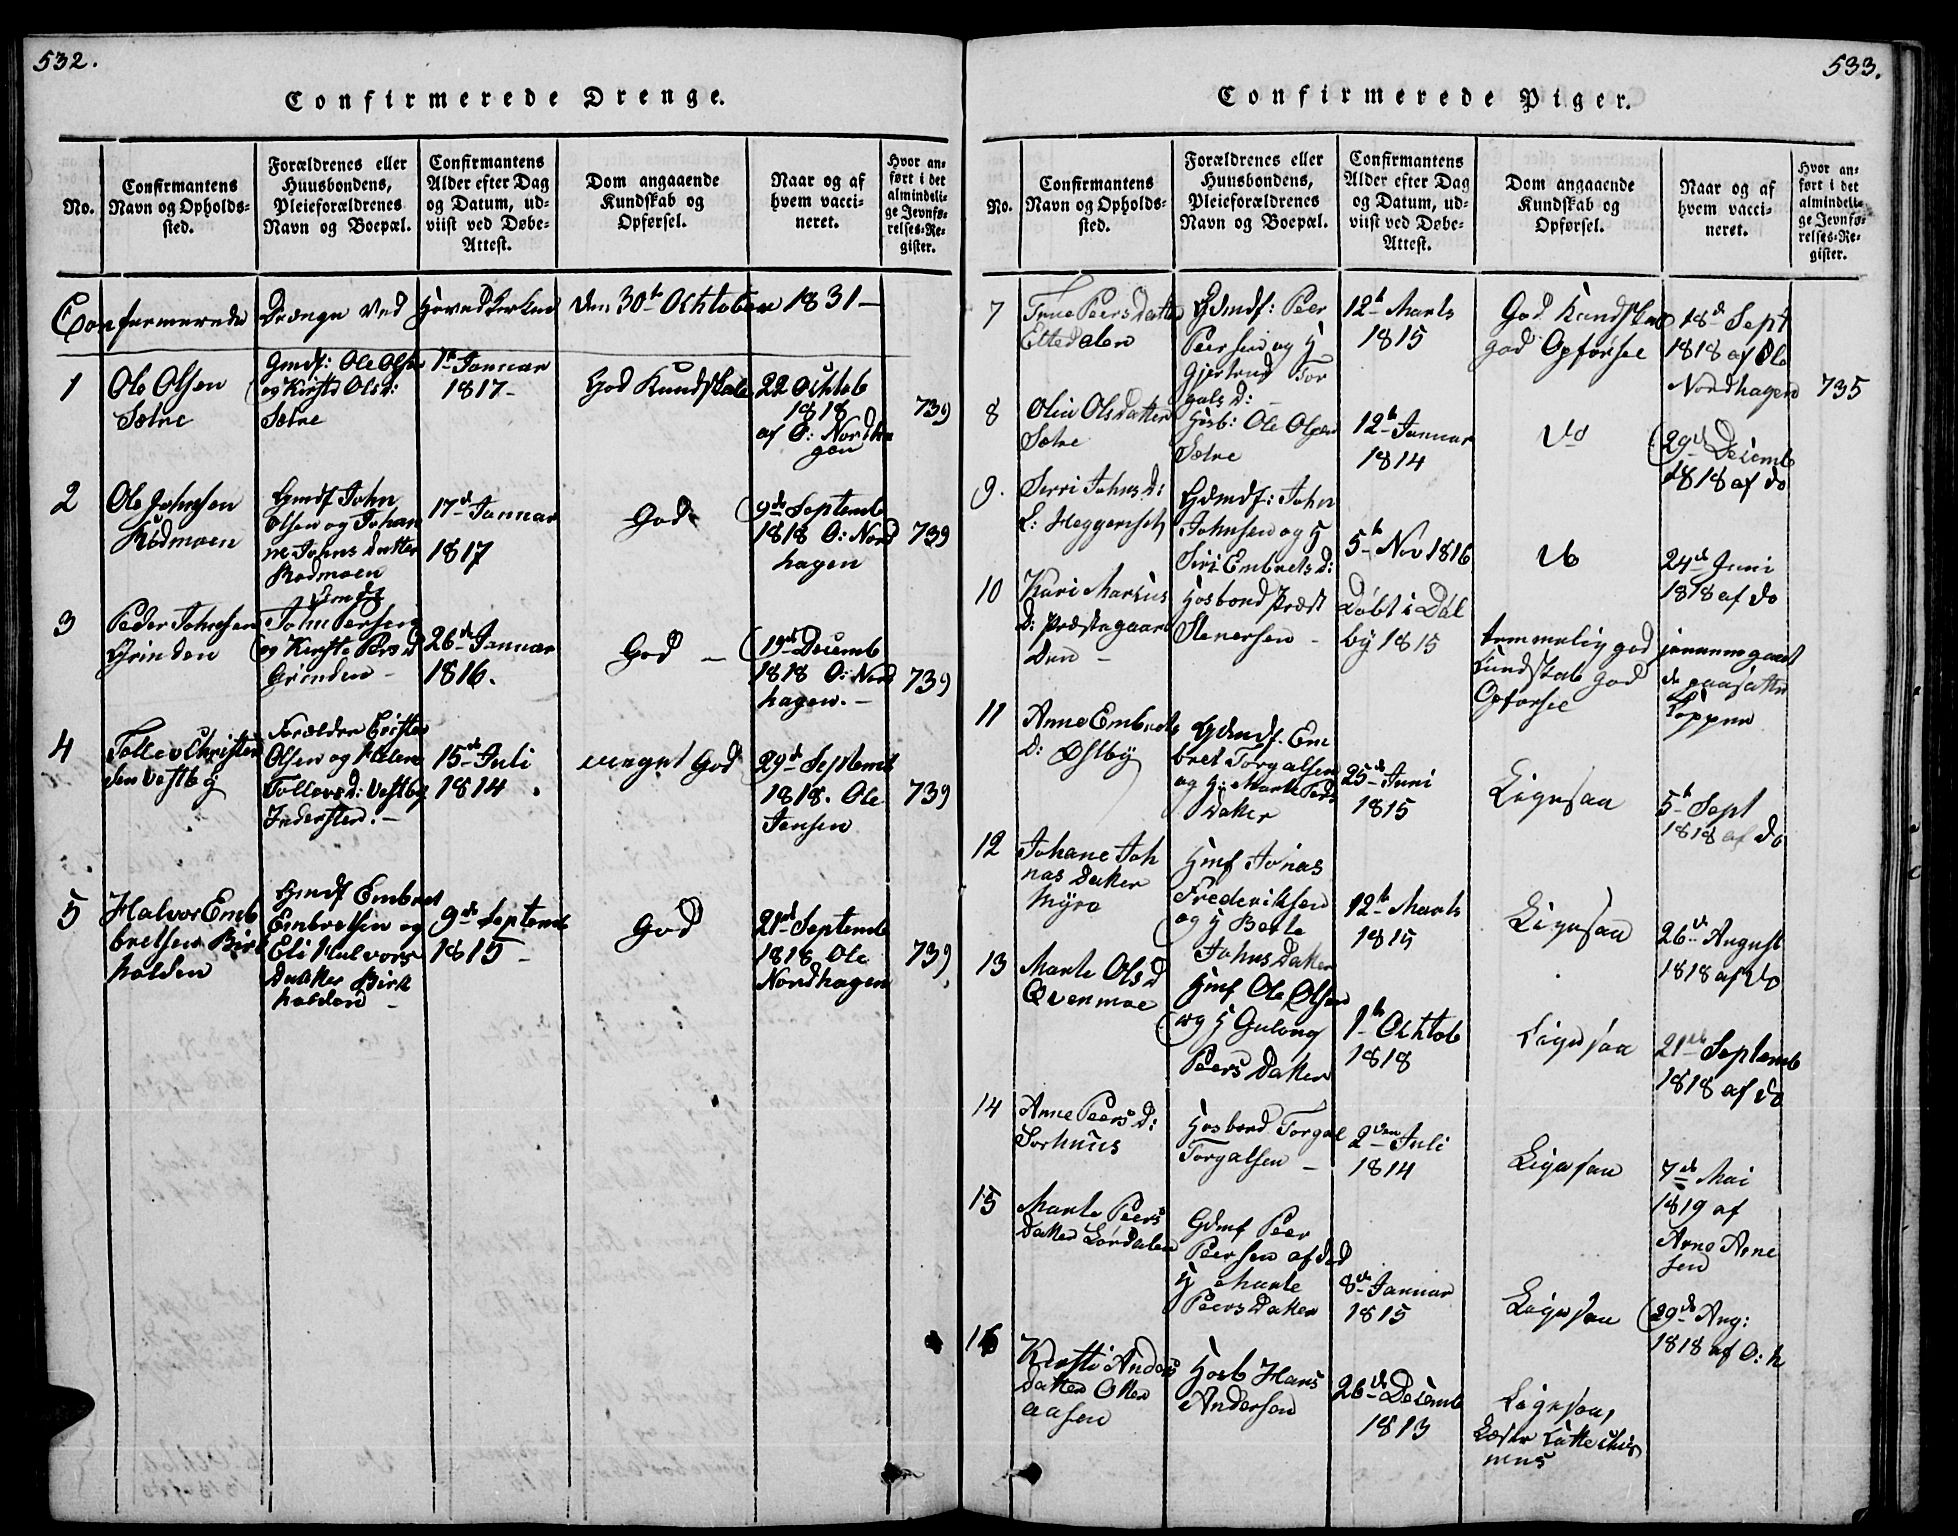 532.
Confirmerede Drenge.
No.
Confirmantens
Navn og Opholds-
sted.
Forældrenes eller
Huusbondens,
Pleieforældrenes
Navn og Boepæl.
Confirmantens
Alder efter Dag
og Datum, ud-
viist ved Døbe-
Attest.
Dom angaaende
Kundskab og
Opførsel.
Naar og af
hvem vacci-
neret.
Hvor an-
ført i det
almindeli-
ge Jevnfø-
relses-Re-
gister.
Confermerede Drenge ved Hovedkerken den 30te Ochtober 1831 -
1
Ole Olsen
Sætre
Gmdf: Ole Olsen
og Kirsti Ols D:
Sætre
1te Januar
1817 -
God Kundskab
22 Ochtob
1818
af O: Nordha
gen
739
2
Ole Johnsen
Rødmoen
Gmdf John
Olsen og Johan
ne Johns Datter
Rødmoen
17de Januar
1817
God
9de Septemb
1818 O: Nord
hagen
739
3
Peder Johnsen
Grinden
Gmdf
John Persen
og Kirsti Pers D
Grinden -
26de Januar
1816.
God -
19de Decemb
1818 O: Nord
hagen. -
739
4
Tollev Christen
sen Vestby
Forælder Christen
Olsen og Halen
Tollevs D: Vestby
Indersten. -
15de Juli
1814.
meget God
29de Septemb
1818. Ole
Jensen
739
5
Halvor Emb
bretsen Birk
holden
Gmdf Embret
Embretsen og
Eli Halvors
Datter Birk
holden -
9de Septemb
1815 -
God
21de Septemb
1818 Ole
Nordhagen
739
533.
Confirmerede Piger.
No.
Confirmantens
Navn og Opholds-
sted.
Forældrenes eller
Huusbondens,
Pleieforældrenes
Navn og Boepæl.
Confirmantens
Alder efter Dag
og Datum, ud-
viist ved Døbe-
Attest.
Dom angaaende
Kundskab og
Opførsel.
Naar og af
hvem vacci-
neret.
Hvor an-
ført i det
almindeli-
ge Jevnfø-
relses-Re-
gister.
7
Peers Datter
Eltedalen
Gdmdf: Peer
Peersen og H
Gjertrud Tor
gals D: -
12te Marts
1815
God Kundskab
god Opførsel
18de Sept
1818 af Ole
Nordhagen
735
8
Olia Olsdatter
Sætre
Hosb: Ole Olsen
Sætre
12te Januar
1814
Do
29de Decemb
1818 af do
9.
Sirri Johns D:
L: Heggeriset
Gdmdf: John
Johnsen og H
Siri Embrets D:
5te Nov 1816
Do
24de Juni
1818 af do
10
Kari Marius
D: Præstegaar
den -
Hosbond Præst
Stenersen -
Døbt i Dal
by 1815
temmelig god
Kundskab god
Opførsel
jennemgaaet
de naa
Kopper
11
Anne Embrets
D: Østby
Gdmdf. Em
bret Torgalsen
og H: Marte Peds
Datter
25de Juni
1815
Ligesaa
5te Sept
1818 af do
12
Johane Joh
nas Datter
Myre
Hmf Jonas
Frederiksen
og H Berte
Johns Datter
12te Marts
1815
Ligesaa
26de August
1818 af do
13
Marte Ols D
Qvenmoe
Hmf Ole Olsen
og H Gulong
Peers Datter
1te Ochtob
1818
Ligesaa
21de Septemb
1818 af do
14
Anne Peers D:
Sorhuus
Hosbond Torgal
Torgalsen -
2den Juli
1814
Ligesaa
7de Mai
1819 af
Arne Arne
sen
15
Marte Peers
Datter Lørdalen
Gdmf Peer
Peersen af død
H Marte
Peers Datter
8de Januar
1815
Ligesaa
29de Aug:
1818 af O: N
16
Kirsti Anders
Datter Otter
aasen
Hosb Hans
Andersen
26de Decemb
1813
Ligesaa,
Læser Kattechis
mus